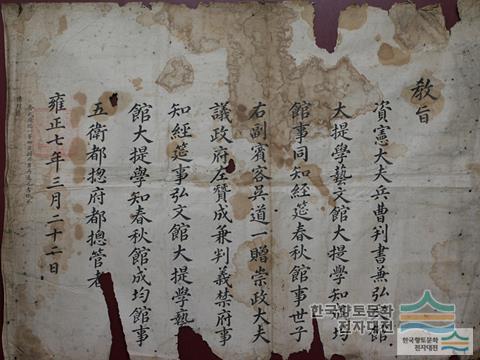 敎旨
資憲大夫兵曹判書兼弘文館
大提學藝文館大提學知成均
館事同知經筵春秋館事世子
右副賓客吳道一贈崇政大夫
議政府左贊成兼判義禁府事
知經筵事弘文館大提學藝
文館大提學知春秋館成均館事
五衛都摠府都摠管者
雍正七年三月二十二日
한국향토문화
전자대전
한국향토문화
전자대전